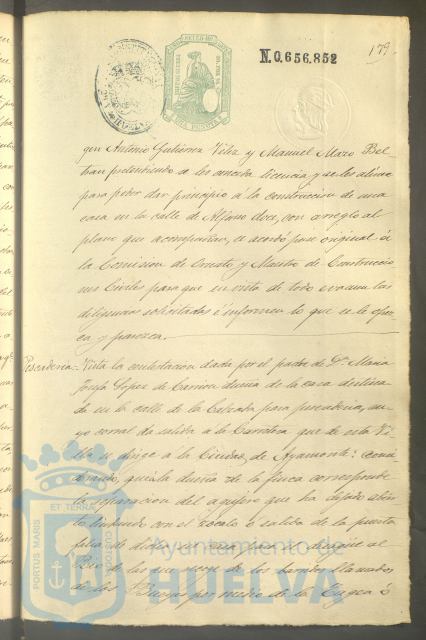 N.0,656,852
179.
gen Antonio Gutierrez Velez y Manuel Mazo Bel
tran pretendiendo se les conceda licencia y se les
para poder dar principio á la construccion de una
casa en la calle de Alfonso doce, con arreglo al
plano que acompañan, se acordó pase original á
la Comision de Ornato y Maestro de Construccio
nes Civiles para que en vista de todo evacuen las
diligencias solicitadas é informen lo que se le ofrez
ca y parezca.
Pescaderia - Vista la contestacion dada por el padre de Dª Maria
Josefa Lopez de Carrion dueña de la casa destina
da en la calle de la Calzada para pescaderia, cu
yo corral da salida á la Carretera que de esta Vi
lla se dirige á la Ciudad de Ayamonte: consi
derando, que á la dueña de la finca corresponde
la reparacion del que ha dejado abier
to lindando con el ó salida de la puerta
falsa de dicha casa al
de las que de los llamados
de los por medio de la ó
PORTUS MARIS ET TERRAE CUSTODIA
Ayuntamiento de
HUELVA